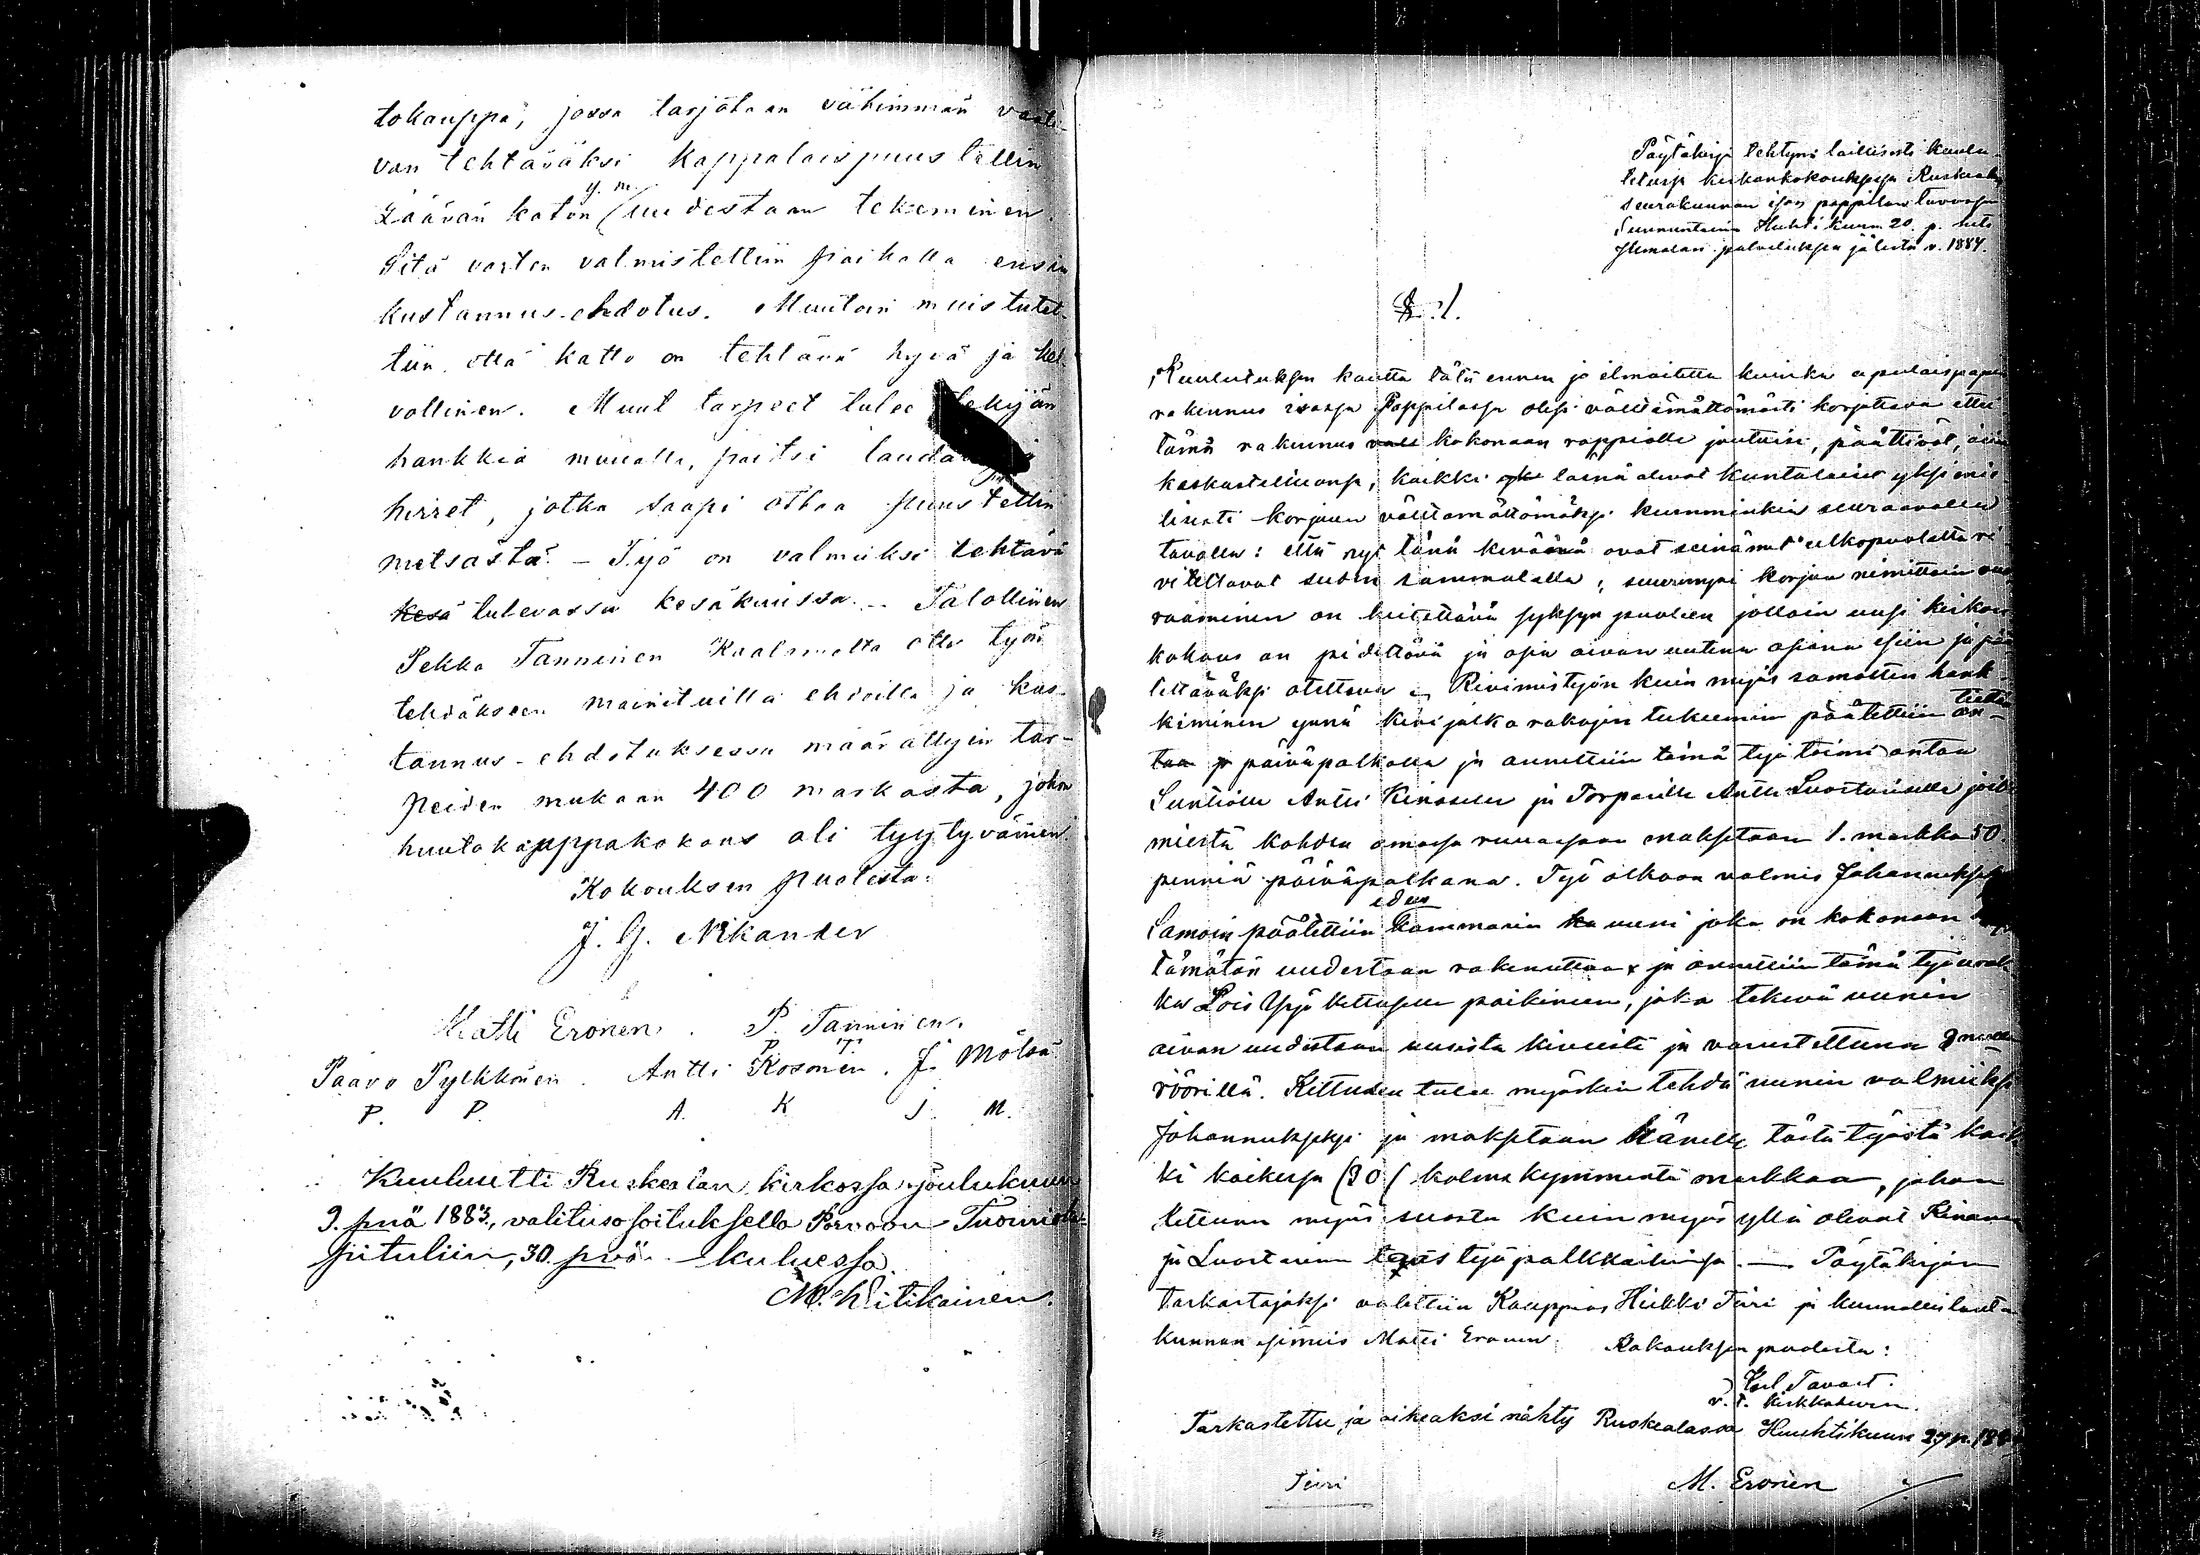 tokauppa, jossa tarjotaan vähimmän vaati-
van tehtäväksi Kappalaispuustellin
Läävän katon (y. m. uudestaan tekeminen.
Sitä varten valmistettiin paikalla ensin
kustannus-ehdotus. Muutoin muistutet-
tiin että katto on tehtävä hyvä ja kel-
vollinen. Muut tarpeet tulee tekijän
hankkia muualta, paitsi
hirret, jotka saapi ottaa puustellin
metsästä. - Työ on valmiiksi tehtävä
kesä tulevassa kesäkuussa. - Talollinen
Pekka Tanninen Kaalamolta otti työn
tehdäkseen mainituilla ehdoilla ja kus-
tannus-ehdotuksessa määrättyin tar-
peiden mukaan 400 markasta, johon
huutokauppakokous oli tyytyväinen.
Kokouksen puolesta:
J. G. Nikander
Matti Eronen. P. Tanninen.
P. T.
Paavo Pylkkönen. Antti Kosonen. J. Mölsä
P. P. A. K J. M.
Kuulutti Ruskealan kirkossa joulukuun
9. pnä 1883, valitusosoituksella Porvoon Tuomio-
pituliin, 30. pvä. kuluessa.
M. Witikainen.
Pöytäkirja tehtynä laillisesti kuulu-
tetussa kirkonkokouksessa Ruskealan
seurakunnan ison pappilan tuvassa
Sunnuntaina Huhtikuun 20 p. heti
Jumalan palveluksen jälestä v. 1884.
§. 1.
Kuulutuksen kautta tätä ennen jo ilmoitettu kuinka apulaispapin
rakennus isossa Pappilassa olisi välttämättömästi korjattava ettei
tämä rakennus kokonaan rappiolle joutuisi, päättivät, asiaa
keskusteltuansa, kaikki läsnä olevat kuntalaiset yksimie-
lisesti korjuun välttämättömäksi kumminkin seuraavalla
tavalla: että nyt tänä keväänä ovat seinämet ulkopuolelta ri-
vitettavat suden sammalella; suurempi korjuu nimittäin
vaaminen on heitettävä syksyn puoleen jolloin uusi kirkon
kokous on pidettävä ja asia aivan uutena asiana esiin ja pää-
tettäväksi otettava. Rivimistyön kuin myös samalten hank-
kiminen ynnä kivijalka rakojen tukeemin päätettiin
taa ja päiväpalkalla ja annettiin tämä työ toimi antaa
Suntiolle Antti Kinoselle ja Torparille Antti Luostariselle joil-
miestä kohden omassa ruuassaan maksetaan 1. markka 50.
penniä päiväpalkana. Työ olkoon valmis Johannukseksi
Samoin päätettiin edus kammarin uuni joka on kokonaan
tämätön uudestaan rakennettaa ja annettiin tämä työ
Lois Yrjö Kettusen paikineen, joka tekevä uunin
aivan uudestaan uusista kiveistä ja varustettuna
röörillä. Kettusen tulee myöskin tehdä uunin valmiiksi
Johannukseksi ja maksetaan hänelle tästä työstä kaik-
ki kaikessa (30) kolmekymmentä markkaa, johon
Kettunen myös suostu kuin myös yllä olevat Kinonen
ja Luostarinen työpalkkoihinsa. — Pöytäkirjan
Tarkastajaksi valittiin Kauppias Heikki Tiiri ja kunnallislauta-
kunnan esimies Matti Eronen. Kokouksen puolesta:
Karl Tavast.
v. t. Kirkkoherra.
Tarkastettu ja oikeaksi nähty Ruskealassa Huuhtikuun 27 p. 1884
Tiiri M. Eronen